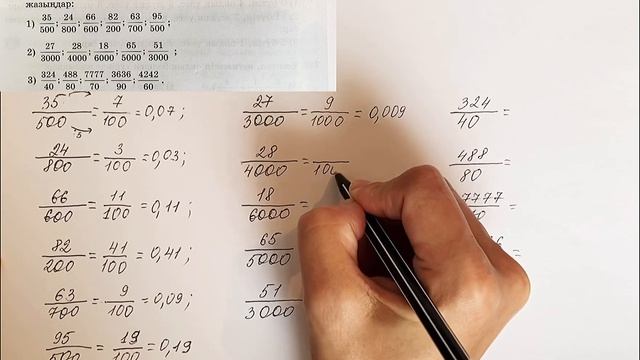 жазыңдар:
1) 35/500; 24/800; 66/600; 82/200; 63/700; 95/500;
2) 27/3000; 28/4000; 18/6000; 65/5000; 51/3000;
3) 324/40; 488/80; 7777/70; 3636/90; 4242/60.
35/500 = 7/100 = 0,07;
:5
24/800 = 3/100 = 0,03;
66/600 = 11/100 = 0,11;
82/200 = 41/100 = 0,41;
63/700 = 9/100 = 0,09;
95/500 = 19/100 = 0,19
27/3000 = 9/1000 = 0,009
28/4000 = /100
18/6000 =
65/5000
51/3000
324/40 =
488/80 =
7777/ =
=